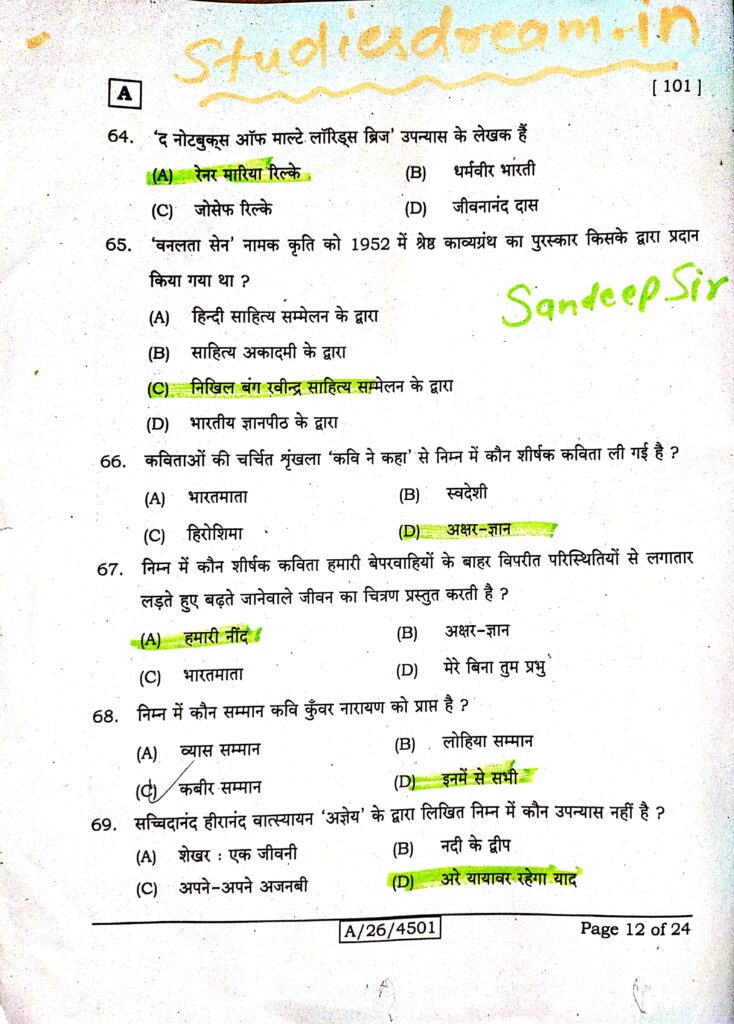 Studiesdream.in
A
[ 101 ]
64. ‘द नोटबुक्स ऑफ माल्टे लॉरिड्स ब्रिज’ उपन्यास के लेखक हैं
(A) रेनर मारिया रिल्के (B) धर्मवीर भारती
(C) जोसेफ रिल्के (D) जीवनानंद दास
65. ‘वनलता सेन’ नामक कृति को 1952 में श्रेष्ठ काव्यग्रंथ का पुरस्कार किसके द्वारा प्रदान
किया गया था ?
Sandeep Sir
(A) हिन्दी साहित्य सम्मेलन के द्वारा
(B) साहित्य अकादमी के द्वारा
(C) निखिल बंग रवीन्द्र साहित्य सम्मेलन के द्वारा
(D) भारतीय ज्ञानपीठ के द्वारा
66. कविताओं की चर्चित शृंखला ‘कवि ने कहा’ से निम्न में कौन शीर्षक कविता ली गई है ?
(A) भारतमाता (B) स्वदेशी
(C) हिरोशिमा (D) अक्षर-ज्ञान
67. निम्न में कौन शीर्षक कविता हमारी बेपरवाहियों के बाहर विपरीत परिस्थितियों से लगातार
लड़ते हुए बढ़ते जानेवाले जीवन का चित्रण प्रस्तुत करती है ?
(A) हमारी नींद (B) अक्षर-ज्ञान
(C) भारतमाता (D) मेरे बिना तुम प्रभु
68. निम्न में कौन सम्मान कवि कुँवर नारायण को प्राप्त है ?
(A) व्यास सम्मान (B) लोहिया सम्मान
(C) कबीर सम्मान (D) इनमें से सभी
69. सच्चिदानंद हीरानंद वात्स्यायन ‘अज्ञेय’ के द्वारा लिखित निम्न में कौन उपन्यास नहीं है ?
(A) शेखर : एक जीवनी (B) नदी के द्वीप
(C) अपने-अपने अजनबी (D) अरे यायावर रहेगा याद
A/26/4501
Page 12 of 24